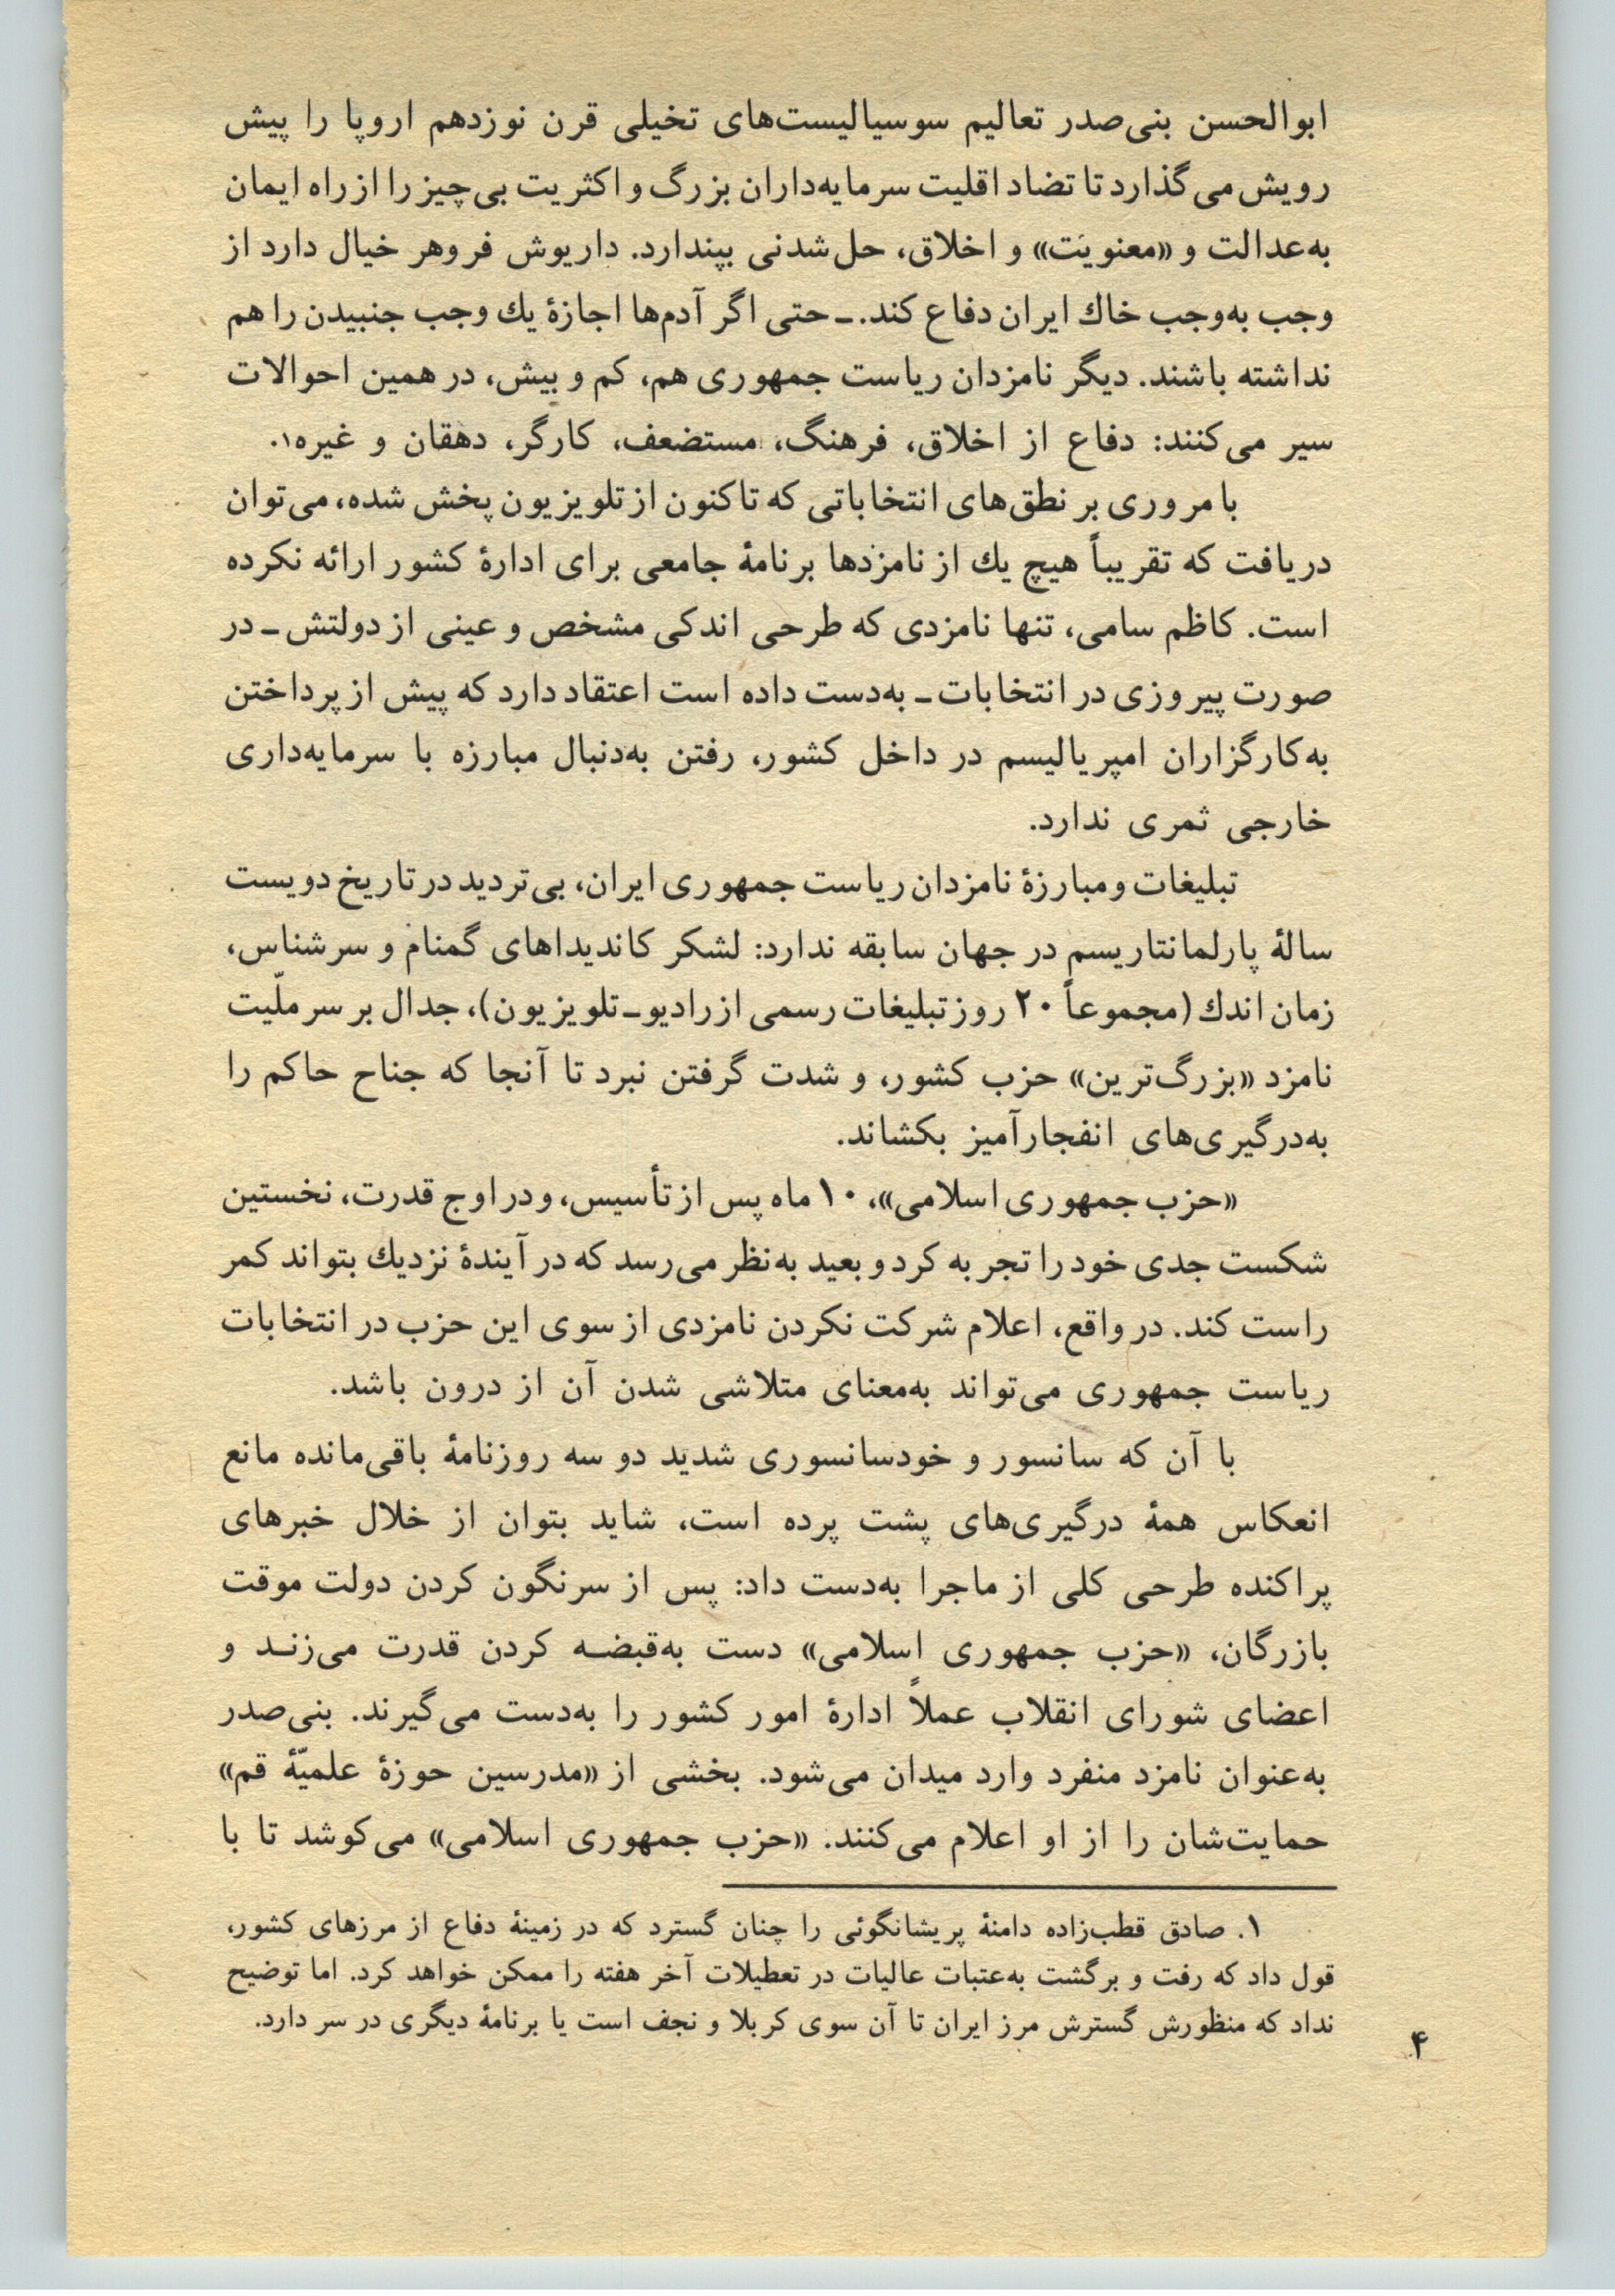 ابوالحسن بنی‌صدر تعالیم سوسیالیست‌های تخیلی قرن نوزدهم اروپا را پیش
رویش می‌گذارد تا تضاد اقلیت سرمایه‌داران بزرگ و اکثریت بی‌چیز را از راه ایمان
به‌عدالت و «معنویَت» و اخلاق، حل‌شدنی بپندارد. داریوش فروهر خیال دارد از
وجب به‌وجب خاك ایران دفاع کند. ـ حتی اگر آدم‌ها اجازهٔ یك وجب جنبیدن را هم
نداشته باشند. دیگر نامزدان ریاست جمهوری هم، کم و بیش، در همین احوالات
سیر می‌کنند: دفاع از اخلاق، فرهنگ، مستضعف، کارگر، دهقان و غیره۱.
با مروری بر نطق‌های انتخاباتی که تاکنون از تلویزیون پخش شده، می‌توان
دریافت که تقریباً هیچ یك از نامزدها برنامهٔ جامعی برای ادارهٔ کشور ارائه نکرده
است. کاظم سامی، تنها نامزدی که طرحی اندکی مشخص و عینی از دولتش ـ در
صورت پیروزی در انتخابات ـ به‌دست داده است اعتقاد دارد که پیش از پرداختن
به‌کارگزاران امپریالیسم در داخل کشور، رفتن به‌دنبال مبارزه با سرمایه‌داری
خارجی ثمری ندارد.
تبلیغات و مبارزهٔ نامزدان ریاست جمهوری ایران، بی‌تردید در تاریخ دویست
سالهٔ پارلمانتاریسم در جهان سابقه ندارد: لشکر کاندیداهای گمنام و سرشناس،
زمان اندك (مجموعاً ۲۰ روز تبلیغات رسمی از رادیو ـ تلویزیون)، جدال بر سر ملّیت
نامزد «بزرگ‌ترین» حزب کشور، و شدت گرفتن نبرد تا آنجا که جناح حاکم را
به‌درگیری‌های انفجارآمیز بکشاند.
«حزب جمهوری اسلامی»، ۱۰ ماه پس از تأسیس، و در اوج قدرت، نخستین
شکست جدی خود را تجربه کرد و بعید به‌نظر می‌رسد که در آیندهٔ نزدیك بتواند کمر
راست کند. در واقع، اعلام شرکت نکردن نامزدی از سوی این حزب در انتخابات
ریاست جمهوری می‌تواند به‌معنای متلاشی شدن آن از درون باشد.
با آن که سانسور و خودسانسوری شدید دو سه روزنامهٔ باقی‌مانده مانع
انعکاس همهٔ درگیری‌های پشت پرده است، شاید بتوان از خلال خبرهای
پراکنده طرحی کلی از ماجرا به‌دست داد: پس از سرنگون کردن دولت موقت
بازرگان، «حزب جمهوری اسلامی» دست به‌قبضه کردن قدرت می‌زند و
اعضای شورای انقلاب عملاً ادارهٔ امور کشور را به‌دست می‌گیرند. بنی‌صدر
به‌عنوان نامزد منفرد وارد میدان می‌شود. بخشی از «مدرسین حوزهٔ علمیّهٔ قم»
حمایت‌شان را از او اعلام می‌کنند. «حزب جمهوری اسلامی» می‌کوشد تا با
۱. صادق قطب‌زاده دامنهٔ پریشانگوئی را چنان گسترد که در زمینهٔ دفاع از مرزهای کشور،
قول داد که رفت و برگشت به‌عتبات عالیات در تعطیلات آخر هفته را ممکن خواهد کرد. اما توضیح
نداد که منظورش گسترش مرز ایران تا آن سوی کربلا و نجف است یا برنامهٔ دیگری در سر دارد.
۴